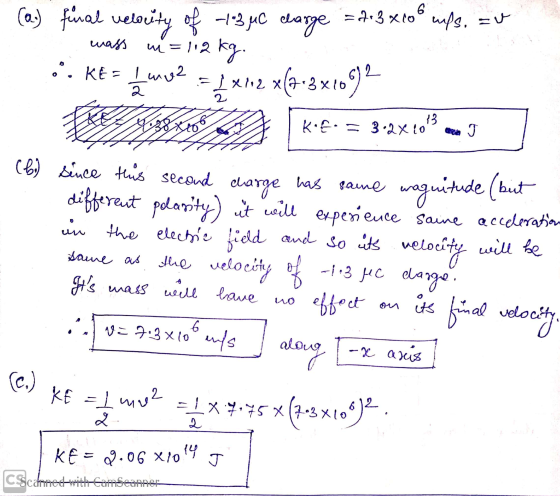 (a.) final velocity of -1.3 μC charge = 7.3 x10⁶ m/s. = v
mass m = 1.2 kg.
∴ KE = 1/2 mv² = 1/2 x 1.2 x (7.3 x 10⁶)²
KE = 4.38 x10⁶ J
K.E. = 3.2 x 10¹³ J
(b.) Since this second charge has same magnitude (but
different polarity) it will experience same acceleration
in the electric field and so its velocity will be
same as the velocity of -1.3 μC charge.
It's mass will have no effect on its final velocity.
∴ v = 7.3 x10⁶ m/s along -x axis
(c.) KE = 1/2 mv² = 1/2 x 7.75 x (7.3 x10⁶)².
KE = 2.06 x10¹⁴ J
CS Scanned with CamScanner